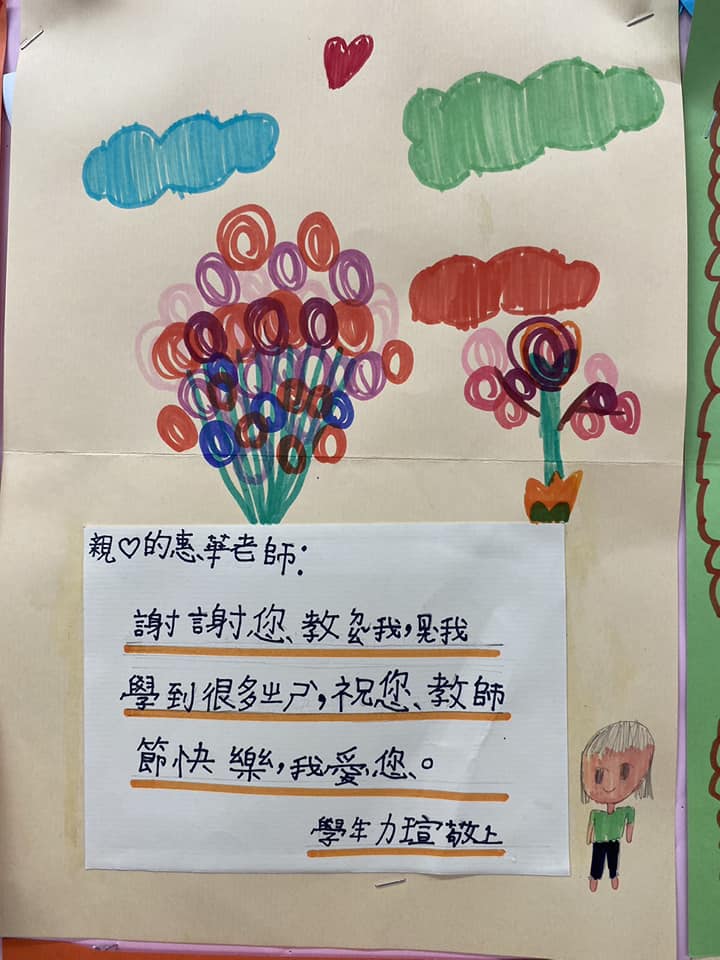 親♡的惠華老師:
謝謝您教我,我
學到很多ㄓㄕ,祝您教師
節快樂,我愛您。
學生力瑄敬上